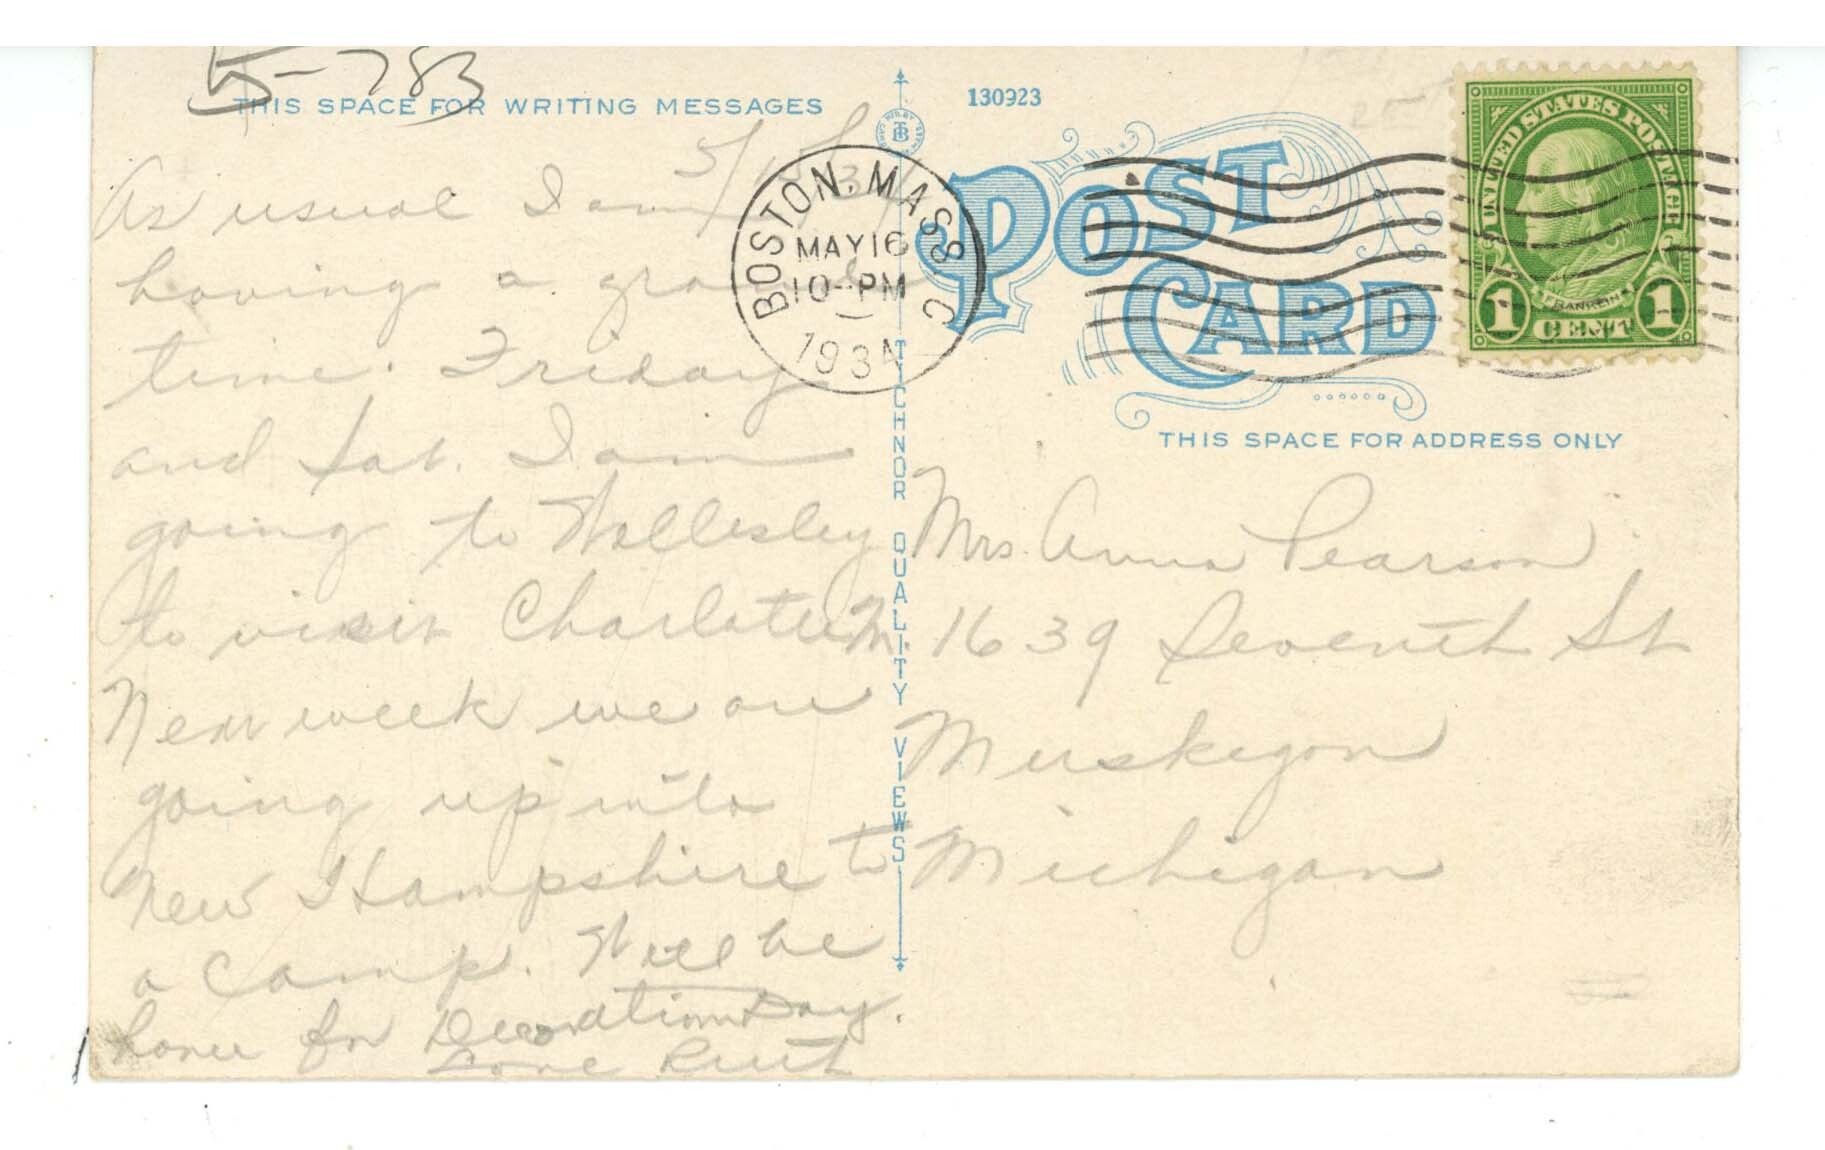 5-783
THIS SPACE FOR WRITING MESSAGES
5/15/34
As usual I am
having a grand
time. Friday
and Sat. I am
going to Wellesley
to visit Charlotte M.
Next week we are
going up into
New Hampshire to
a camp. Will be
home for Decoration Day.
Love Ruth
BOSTON, MASS. C
MAY 16
10-PM
1934
TICHNOR QUALITY VIEWS
130923
POST
CARD
UNITED STATES POSTAGE
FRANKLIN
1 CENT 1
THIS SPACE FOR ADDRESS ONLY
Mrs. Anna Pearson
1639 Seventh St
Muskegon
Michigan